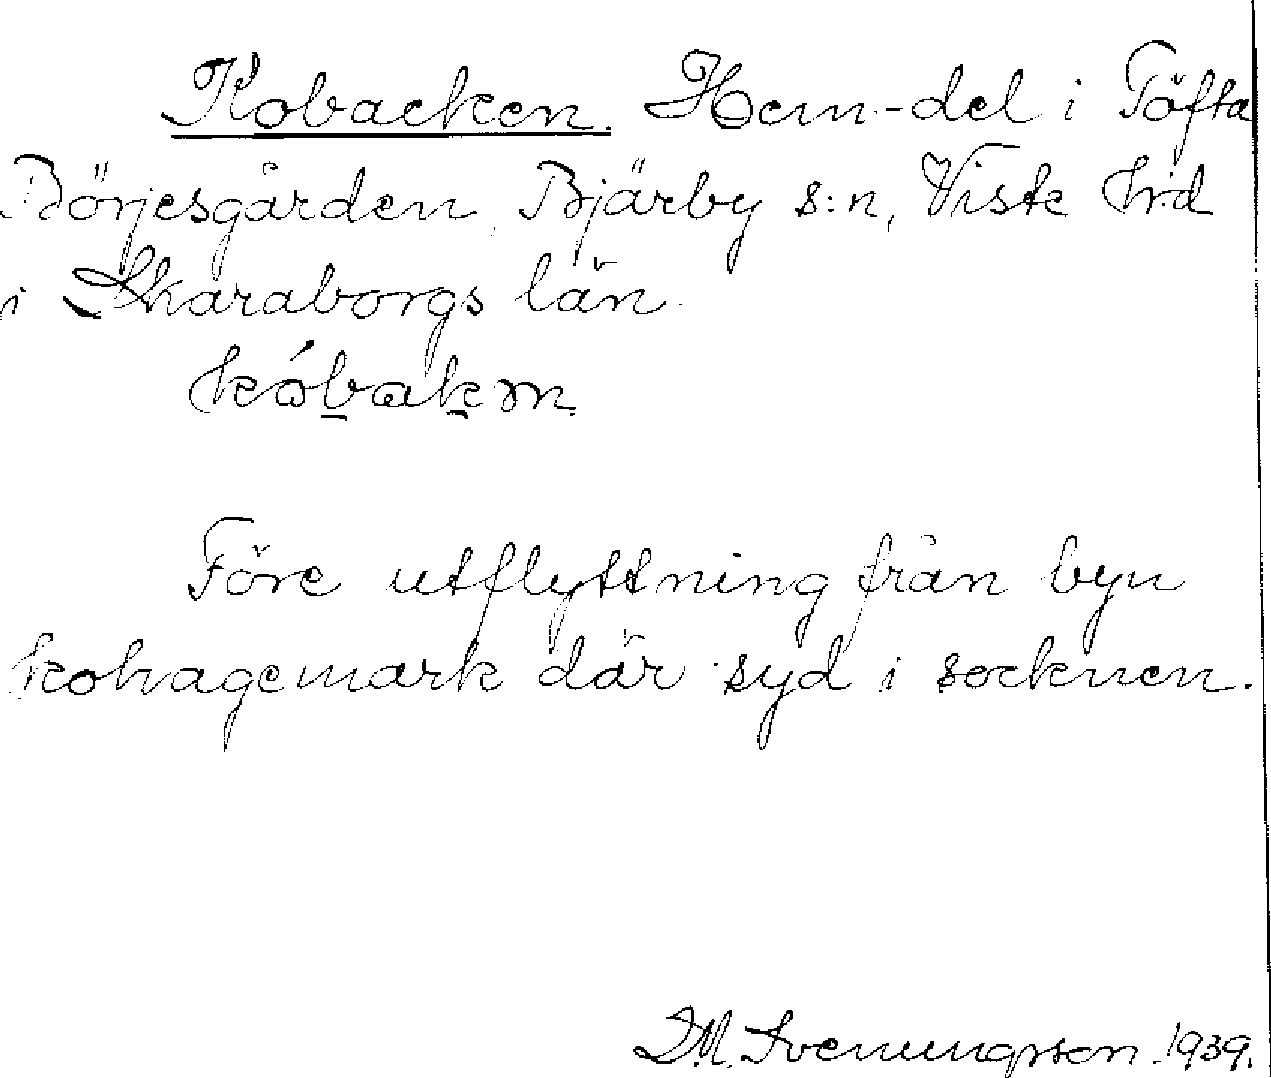 Kobacken. Hem.-del i Töfta
Börjesgården, Bjärby s:n, Viste hrd
i Skaraborgs län.
kóbakən.
Före utflyttning från byn
kohagemark där syd i socknen.
D.M. Svenungsson. 1939.